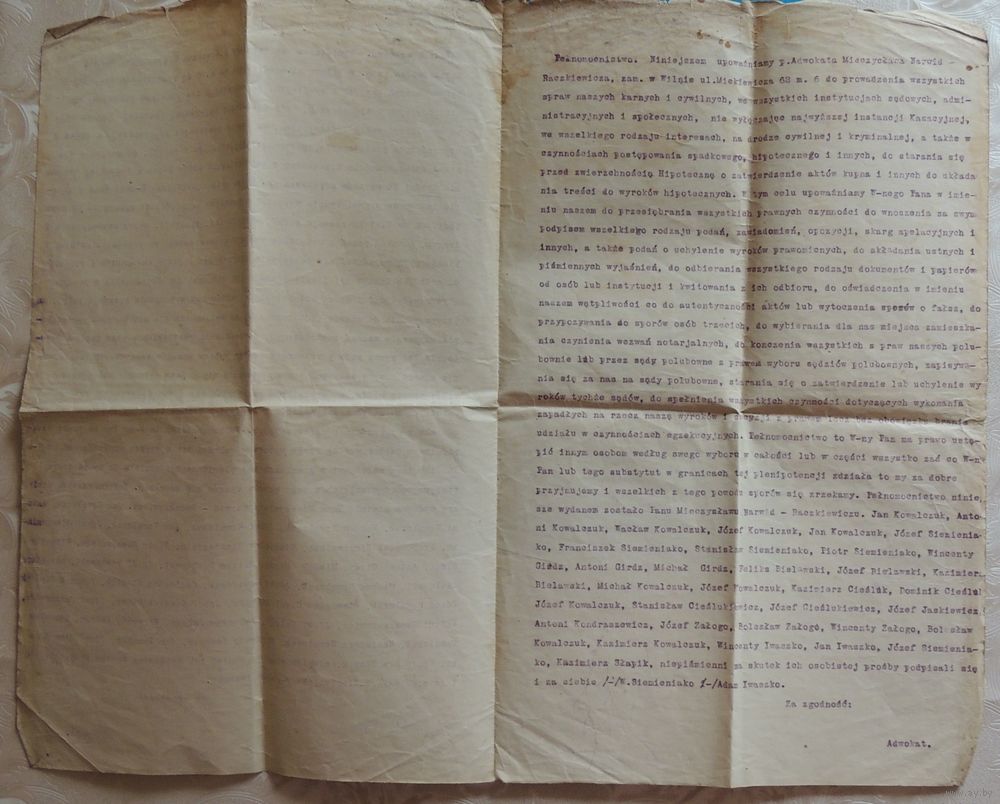 Pełnomocnictwo. Niniejszem upoważniamy p.Adwokata Mieczysława Narwid -
Raczkiewicza, zam. w Wilnie ul.Mickiewicza 62 m. 6 do prowadzenia wszystkich
spraw naszych karnych i cywilnych, we wszystkich instytucjach sądowych, admi-
nistracyjnych i społecznych, nie wyłączając najwyższej instancji Kasacyjnej,
we wszelkiego rodzaju interesach, na drodze cywilnej i kryminalnej, a także w
czynnościach postępowania spadkowego, hipotecznego i innych, do starania się
przed zwierzchnością Hipoteczną o zatwierdzenie aktów kupna i innych do układa
nia treści do wyroków hipotecznych. W tym celu upoważniamy W-nego Pana w imie-
niu naszem do przesiębrania wszystkich prawnych czynności do wnoszenia za swym
podpisem wszelkiego rodzaju podań, zawiadomień, opozycji, skarg apelacyjnych i
innych, a także podań o uchylenie wyroków prawomicnych, do składania ustnych i
piśmiennych wyjaśnień, do odbierania wszystkiego rodzaju dokumentów i papierów
od osób lub instytucji i kwitowania z ich odbioru, do oświadczenia w imieniu
naszem wątpliwości co do autentyczności aktów lub wytoczenia sporów o fałsz, do
przypozywania do sporów osób trzecich, do wybierania dla nas miejsca zamieszka-
nia czynienia wezwań notarjalnych, do kończenia wszystkich s praw naszych polu-
bownie lub przez sądy polubowne z prawem wyboru sędziów polubownych, zapisywa-
nia się za nas na sądy polubowne, starania się o zatwierdzenie lub uchylenie wy
roków tychże sądów, do spełnienia wszystkich czynności dotyczących wykonania
zapadłych na rzecz naszą wyroków i decyzji z prawem lecz bez obowiązku brania
udziału w czynnościach egzekucyjnych. Pełnomocnictwo to W-ny Pan ma prawo ustą-
pić innym osobom według swego wyboru w całości lub w części wszystko zaś co W-ny
Pan lub tego substytut w granicach tej plenipotencji zdziała to my za dobre
przyjmujemy i wszelkich z tego powodu sporów się zrzekamy. Pełnomocnictwo ninie
sze wydanem zostało Panu Mieczysławu Narwid - Raczkiewiczu. Jan Kowalczuk, Anto
ni Kowalczuk, Wacław Kowalczuk, Józef Kowalczuk, Jan Kowalczuk, Józef Siemienia-
ko, Franciszek Siemieniako, Stanisław Siemieniako, Piotr Siemieniako, Wincenty
Girdz, Antoni Girdz, Michał Girdz, Feliks Bielawski, Józef Bielawski, Kazimierz
Bielawski, Michał Kowalczuk, Józef Kowalczuk, Kazimierz Cieśluk, Dominik Cieśluk
Józef Kowalczuk, Stanisław Cieślukiewicz, Józef Cieślukiewicz, Józef Jaskiewicz
Antoni Kondraszewicz, Józef Załogo, Bolesław Załogo, Wincenty Załogo, Bolesław
Kowalczuk, Kazimierz Kowalczuk, Wincenty Iwaszko, Jan Iwaszko, Józef Siemienia-
ko, Kazimierz Słapik, niepiśmienni za skutek ich osobistej prośby podpisali się
i za siebie /-/W.Siemieniako /-/Adam Iwaszko.
Za zgodność:
Adwokat.
www.ay.by